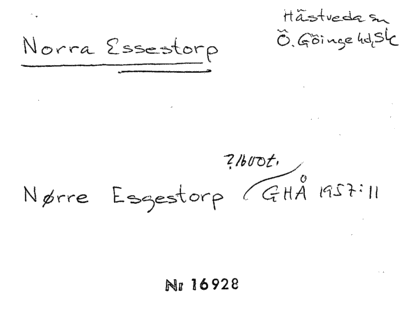 Norra Essestorp
Hästveda sn
Ö. Göinge hd, Sk
? 1600t.
Nørre Esgestorp GHÅ 1957:11
Nr 16928